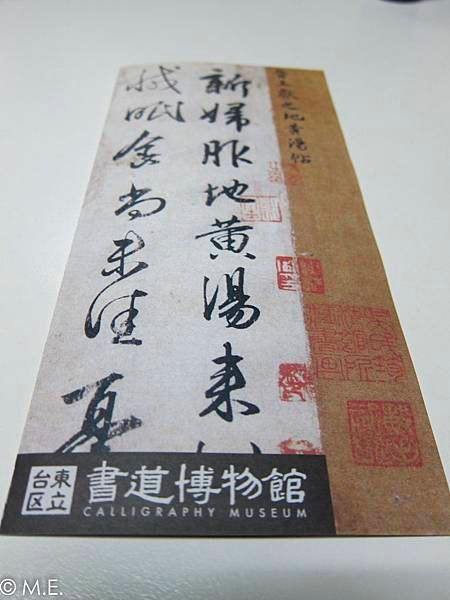 晉王獻之地黃湯帖
新婦服地黄湯来
減眠食尚未佳
台東
区立
書道博物館
CALLIGRAPHY MUSEUM
© M.E.